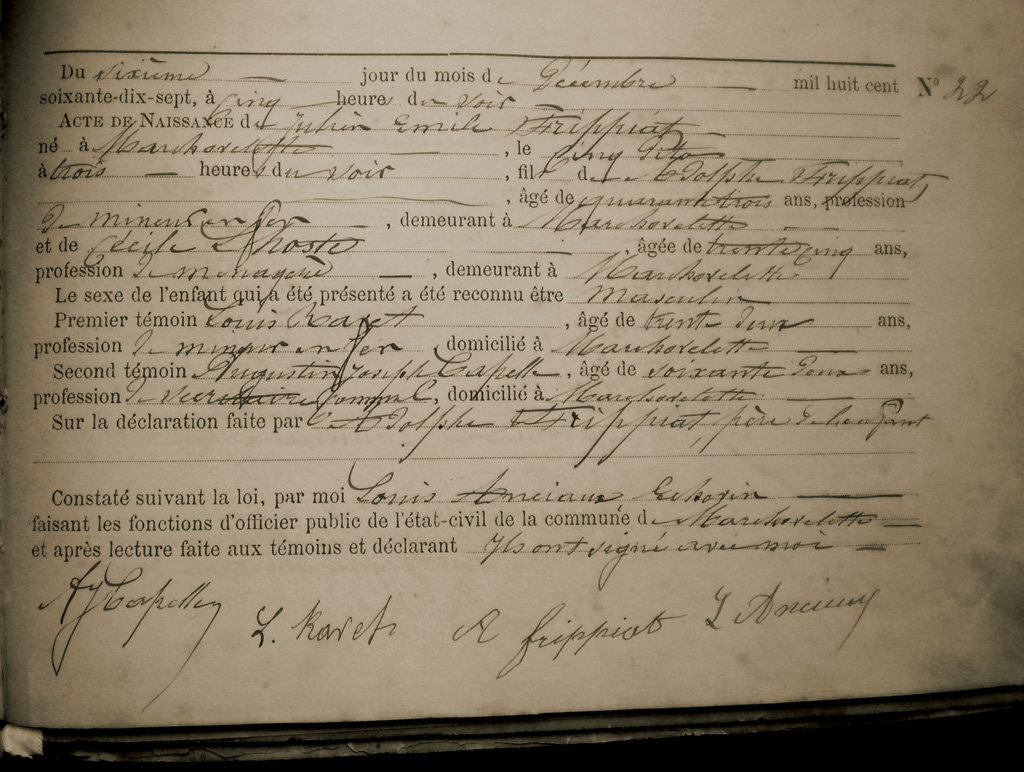 Du sixième jour du mois de Décembre mil huit cent N° 22
soixante-dix-sept, à cinq heures du soir
ACTE DE NAISSANCE de Julien Emile Frippiat
né à Marchovelette, le cinq dito
à trois heures du soir, fils de Adolphe Frippiat,
, âgé de quarante trois ans, profession
de mineur en fer, demeurant à Marchovelette
et de Cécile Lhoste, âgée de trente cinq ans,
profession de menagère, demeurant à Marchovelette
Le sexe de l'enfant qui a été présenté a été reconnu être masculin
Premier témoin Louis Ravet, âgé de trente deux ans,
profession de mineur en fer, domicilié à Marchovelette
Second témoin Augustin Joseph Capelle, âgé de soixante deux ans,
profession de secretaire communal, domicilié à Marchovelette
Sur la déclaration faite par Adolphe Frippiat père de l'enfant
Constaté suivant la loi, par moi Louis Anciaux Echevin
faisant les fonctions d'officier public de l'état-civil de la commune de Marchovelette
et après lecture faite aux témoins et déclarant Ils ont signé avec moi
A J Capelle L. Ravet A frippiat L Anciaux